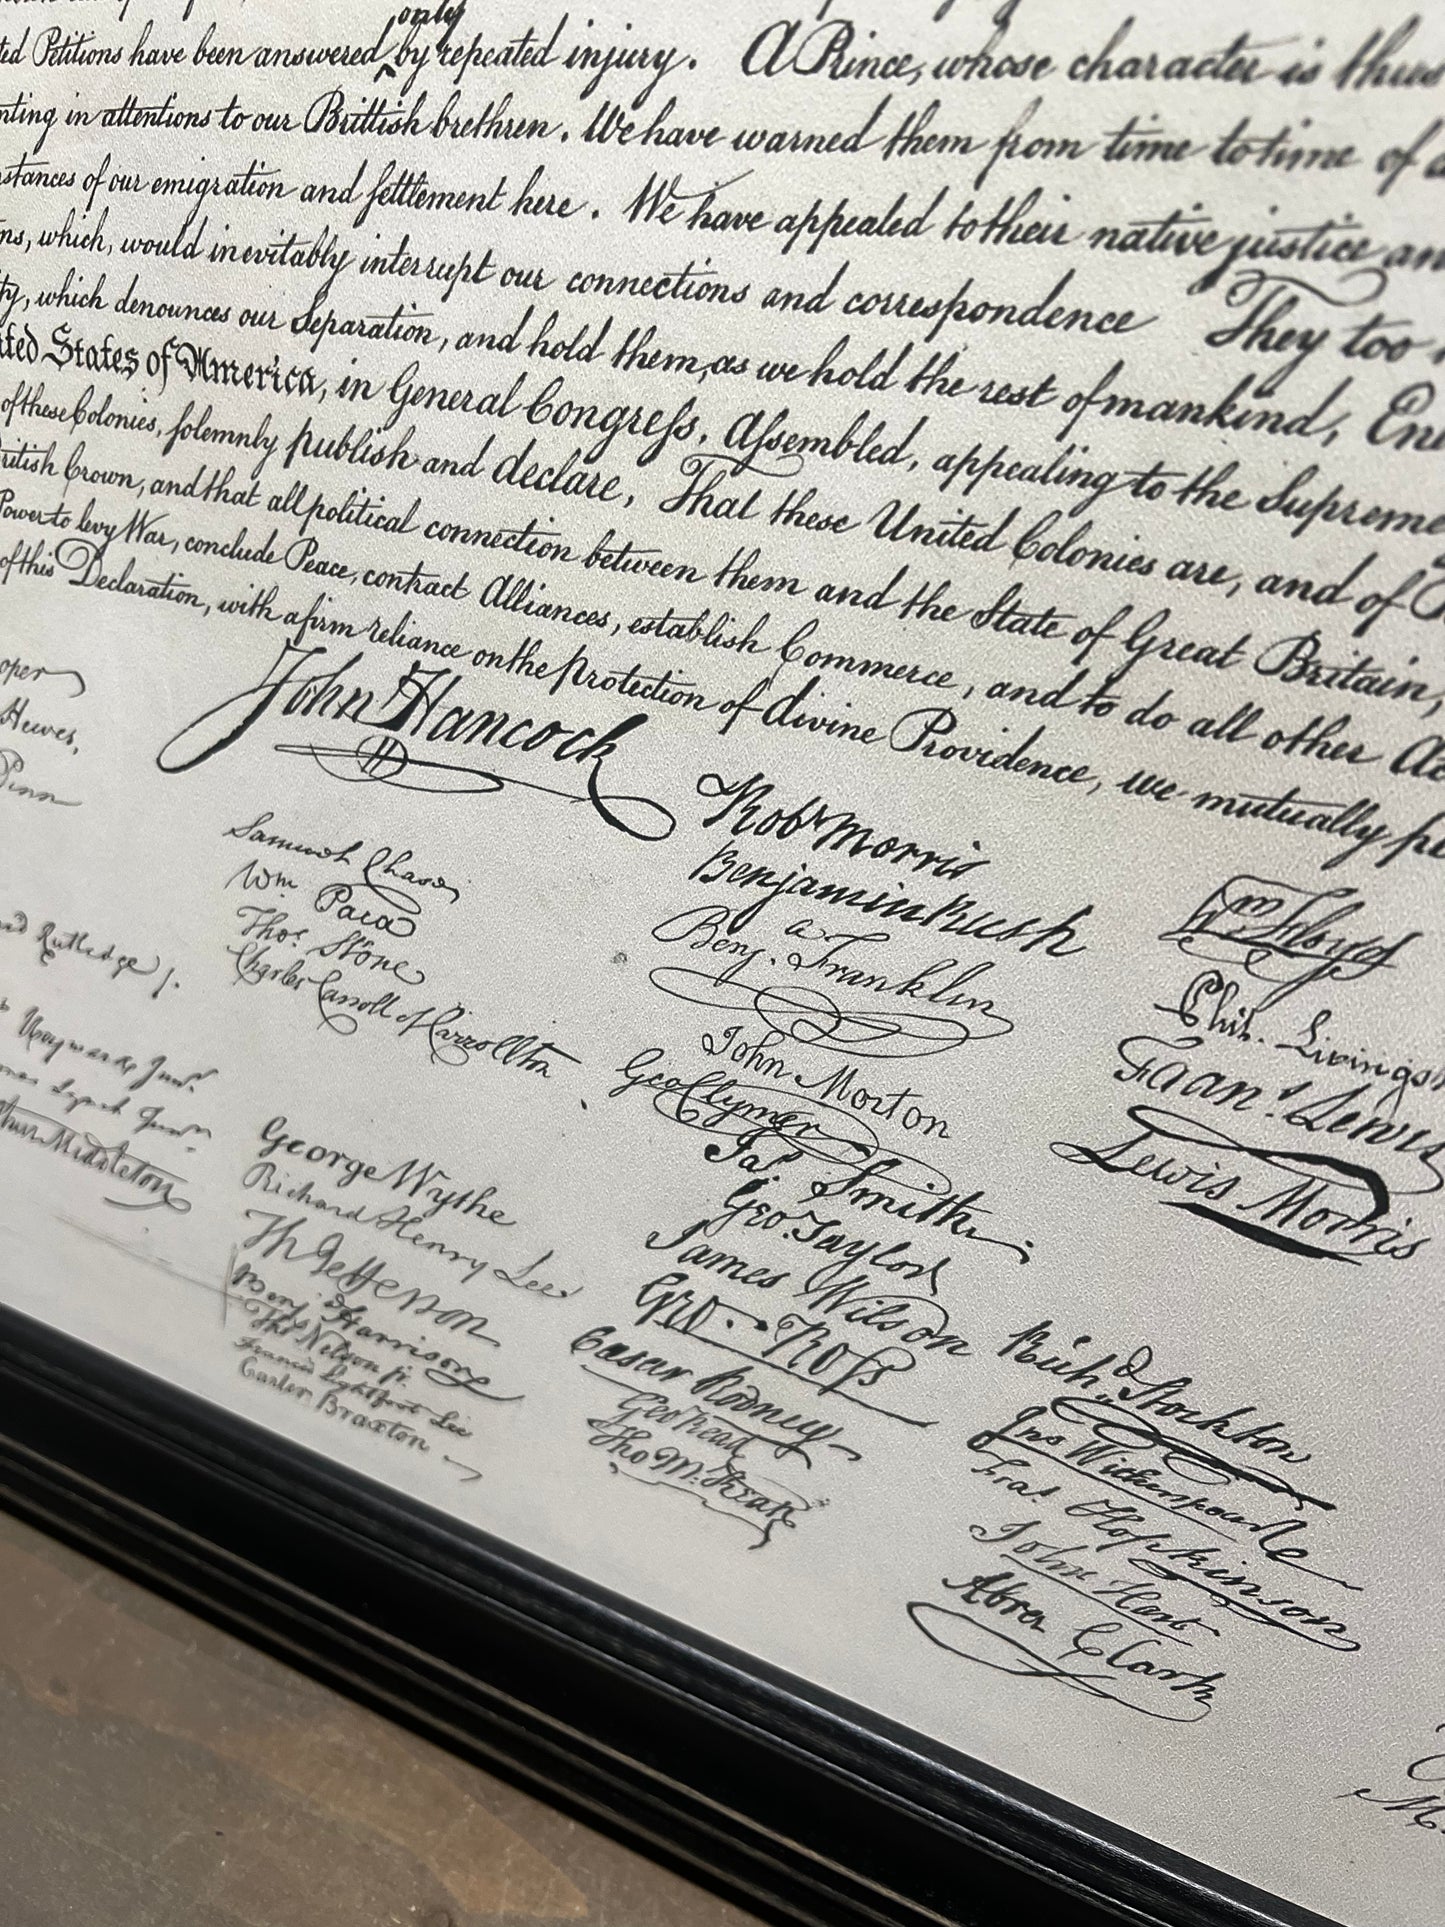 only
ted Petitions have been answered by repeated injury. A Prince, whose character is thus
nting in attentions to our Brittish brethren. We have warned them from time to time of a
stances of our emigration and settlement here. We have appealed to their native justice an
ns, which, would inevitably interrupt our connections and correspondence They too
ty, which denounces our Separation, and hold them, as we hold the rest of mankind, Ene
ited States of America, in General Congress, Assembled, appealing to the Supreme
of these Colonies, solemnly publish and declare, That these United Colonies are, and of
ritish Crown, and that all political connection between them and the State of Great Britain,
Power to levy War, conclude Peace, contract Alliances, establish Commerce, and to do all other Ac
of this Declaration, with a firm reliance on the protection of divine Providence, we mutually pl
oper
Hewes,
Penn
Rutledge
Heyward Junr.
Lynch Junr.
Middleton
John Hancock
Samuel Chase
Wm. Paca
Thos. Stone
Charles Carroll of Carrollton
George Wythe
Richard Henry Lee
Th Jefferson
Benj Harrison
Thos Nelson jr.
Francis Lightfoot Lee
Carter Braxton
Robt Morris
Benjamin Rush
Benj. Franklin
John Morton
Geo Clymer
Jas. Smith
Geo. Taylor
James Wilson
Geo. Ross
Caesar Rodney
Geo Read
Tho M:Kean
Wm Floyd
Phil. Livings
Frans. Lewis
Lewis Morris
Richd. Stockton
Jno Witherspoon
Fras. Hopkinson
John Hart
Abra Clark